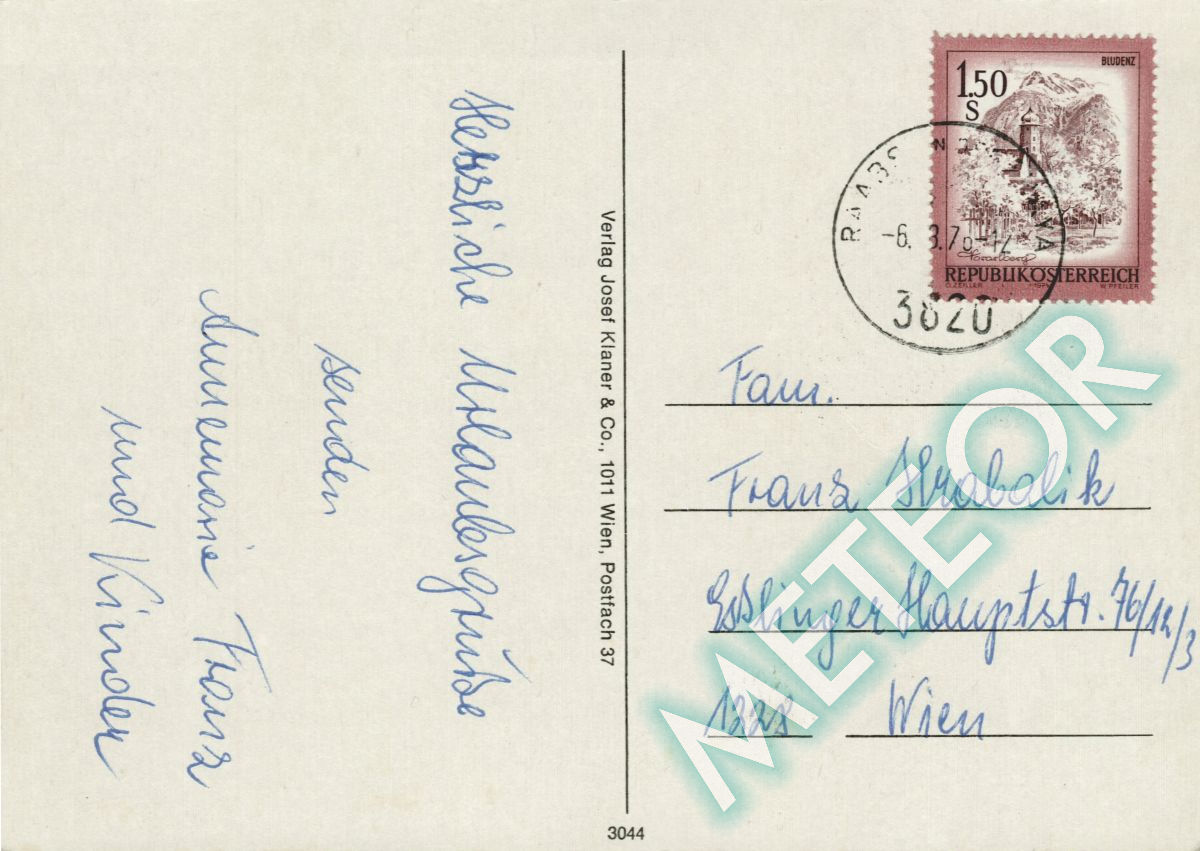 Herzliche Urlaubsgrüße
senden
Annemarie Franz
und Kinder
Verlag Josef Klaner & Co., 1011 Wien, Postfach 37
3044
BLUDENZ
1.50
S
Vorarlberg
REPUBLIK ÖSTERREICH
O. ZEILLER W. PFEILER
RAABS THAYA
3820
Fam.
Franz Hrabalik
Eßlinger Hauptstr. 76/12/3
1228 Wien
METEOR